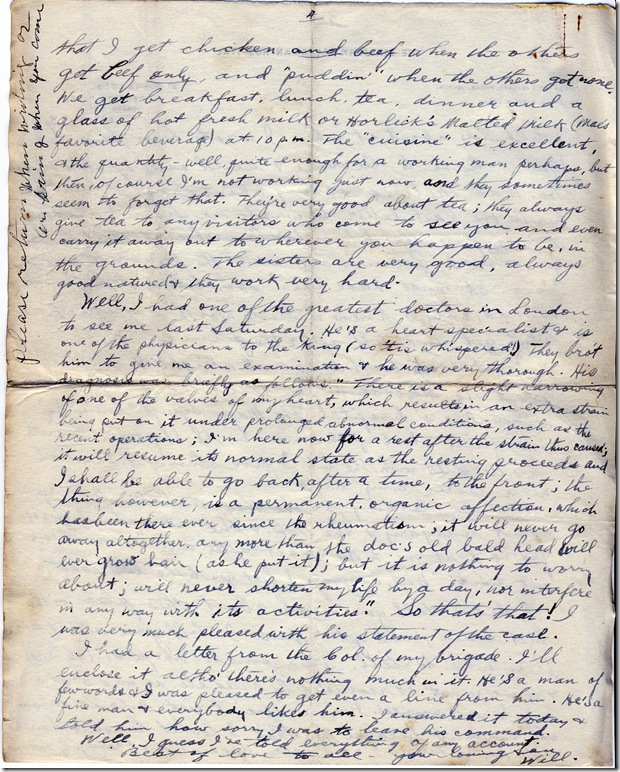 4
that I get chicken and beef when the others
get beef only, and "puddin'" when the others get none.
We get breakfast, lunch, tea, dinner and a
glass of hot fresh milk or Horlick's Malted Milk (Ma's
favorite beverage) at 10 p.m. The "cuisine" is excellent,
& the quantity - well, quite enough for a working man perhaps, but
then, of course I'm not working just now, and they sometimes
seem to forget that. They're very good about tea; they always
give tea to any visitors who come to see you and even
carry it away out to wherever you happen to be, in
the grounds. The sisters are very good, always
good natured & they work very hard.
Well, I had one of the greatest doctors in London
to see me last Saturday. He's a heart specialist & is
one of the physicians to the King (so 'tis whispered!) They bro't
him to give me an examination & he was very thorough. His
diagnosis was briefly as follows. "There is a slight narrowing
of one of the valves of my heart, which results in an extra strain
being put on it under prolonged abnormal conditions, such as the
recent operations; I'm here now for a rest after the strain thus caused;
it will resume its normal state as the resting proceeds and
I shall be able to go back, after a time, to the front; the
thing however, is a permanent, organic affection, which
has been there ever since the rheumatism; it will never go
away altogether, any more than the doc's old bald head will
ever grow hair (as he put it); but it is nothing to worry
about, will never shorten my life by a day, nor interfere
in any way with its activities." So thats that! I
was very much pleased with his statement of the case.
I had a letter from the Col. of my brigade. I'll
enclose it altho' there's nothing much in it. He's a man of
few words & I was pleased to get even a line from him. He's a
fine man & everybody likes him. I answered it today &
told him how sorry I was to leave his command.
Well, I guess I've told everything of any account.
Best of love to all - your loving son,
Will.
Please return when writing
or bring when you come